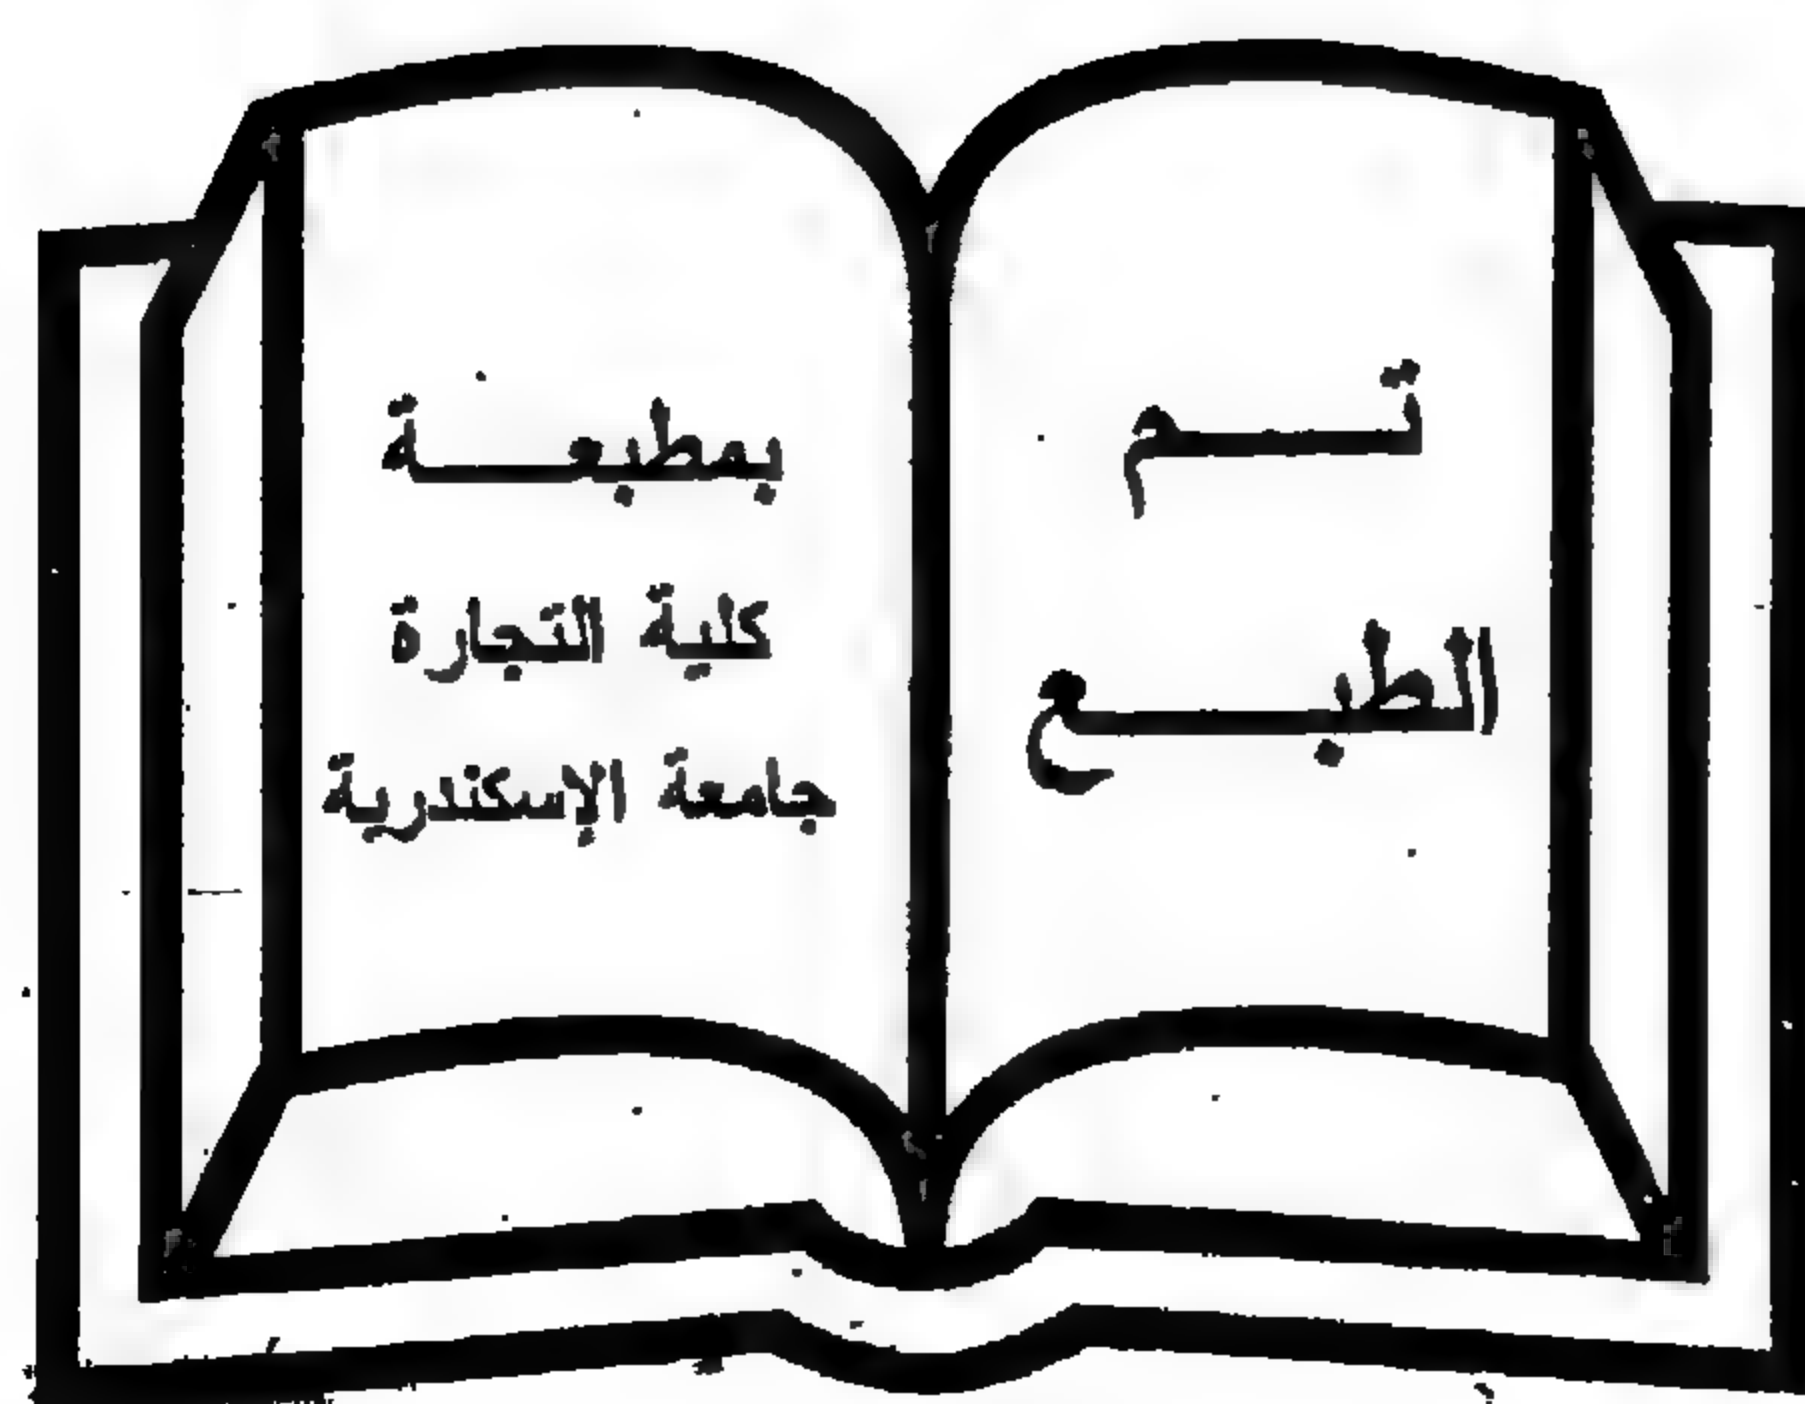 تم
الطبع
بمطبعة
كلية التجارة
جامعة الإسكندرية